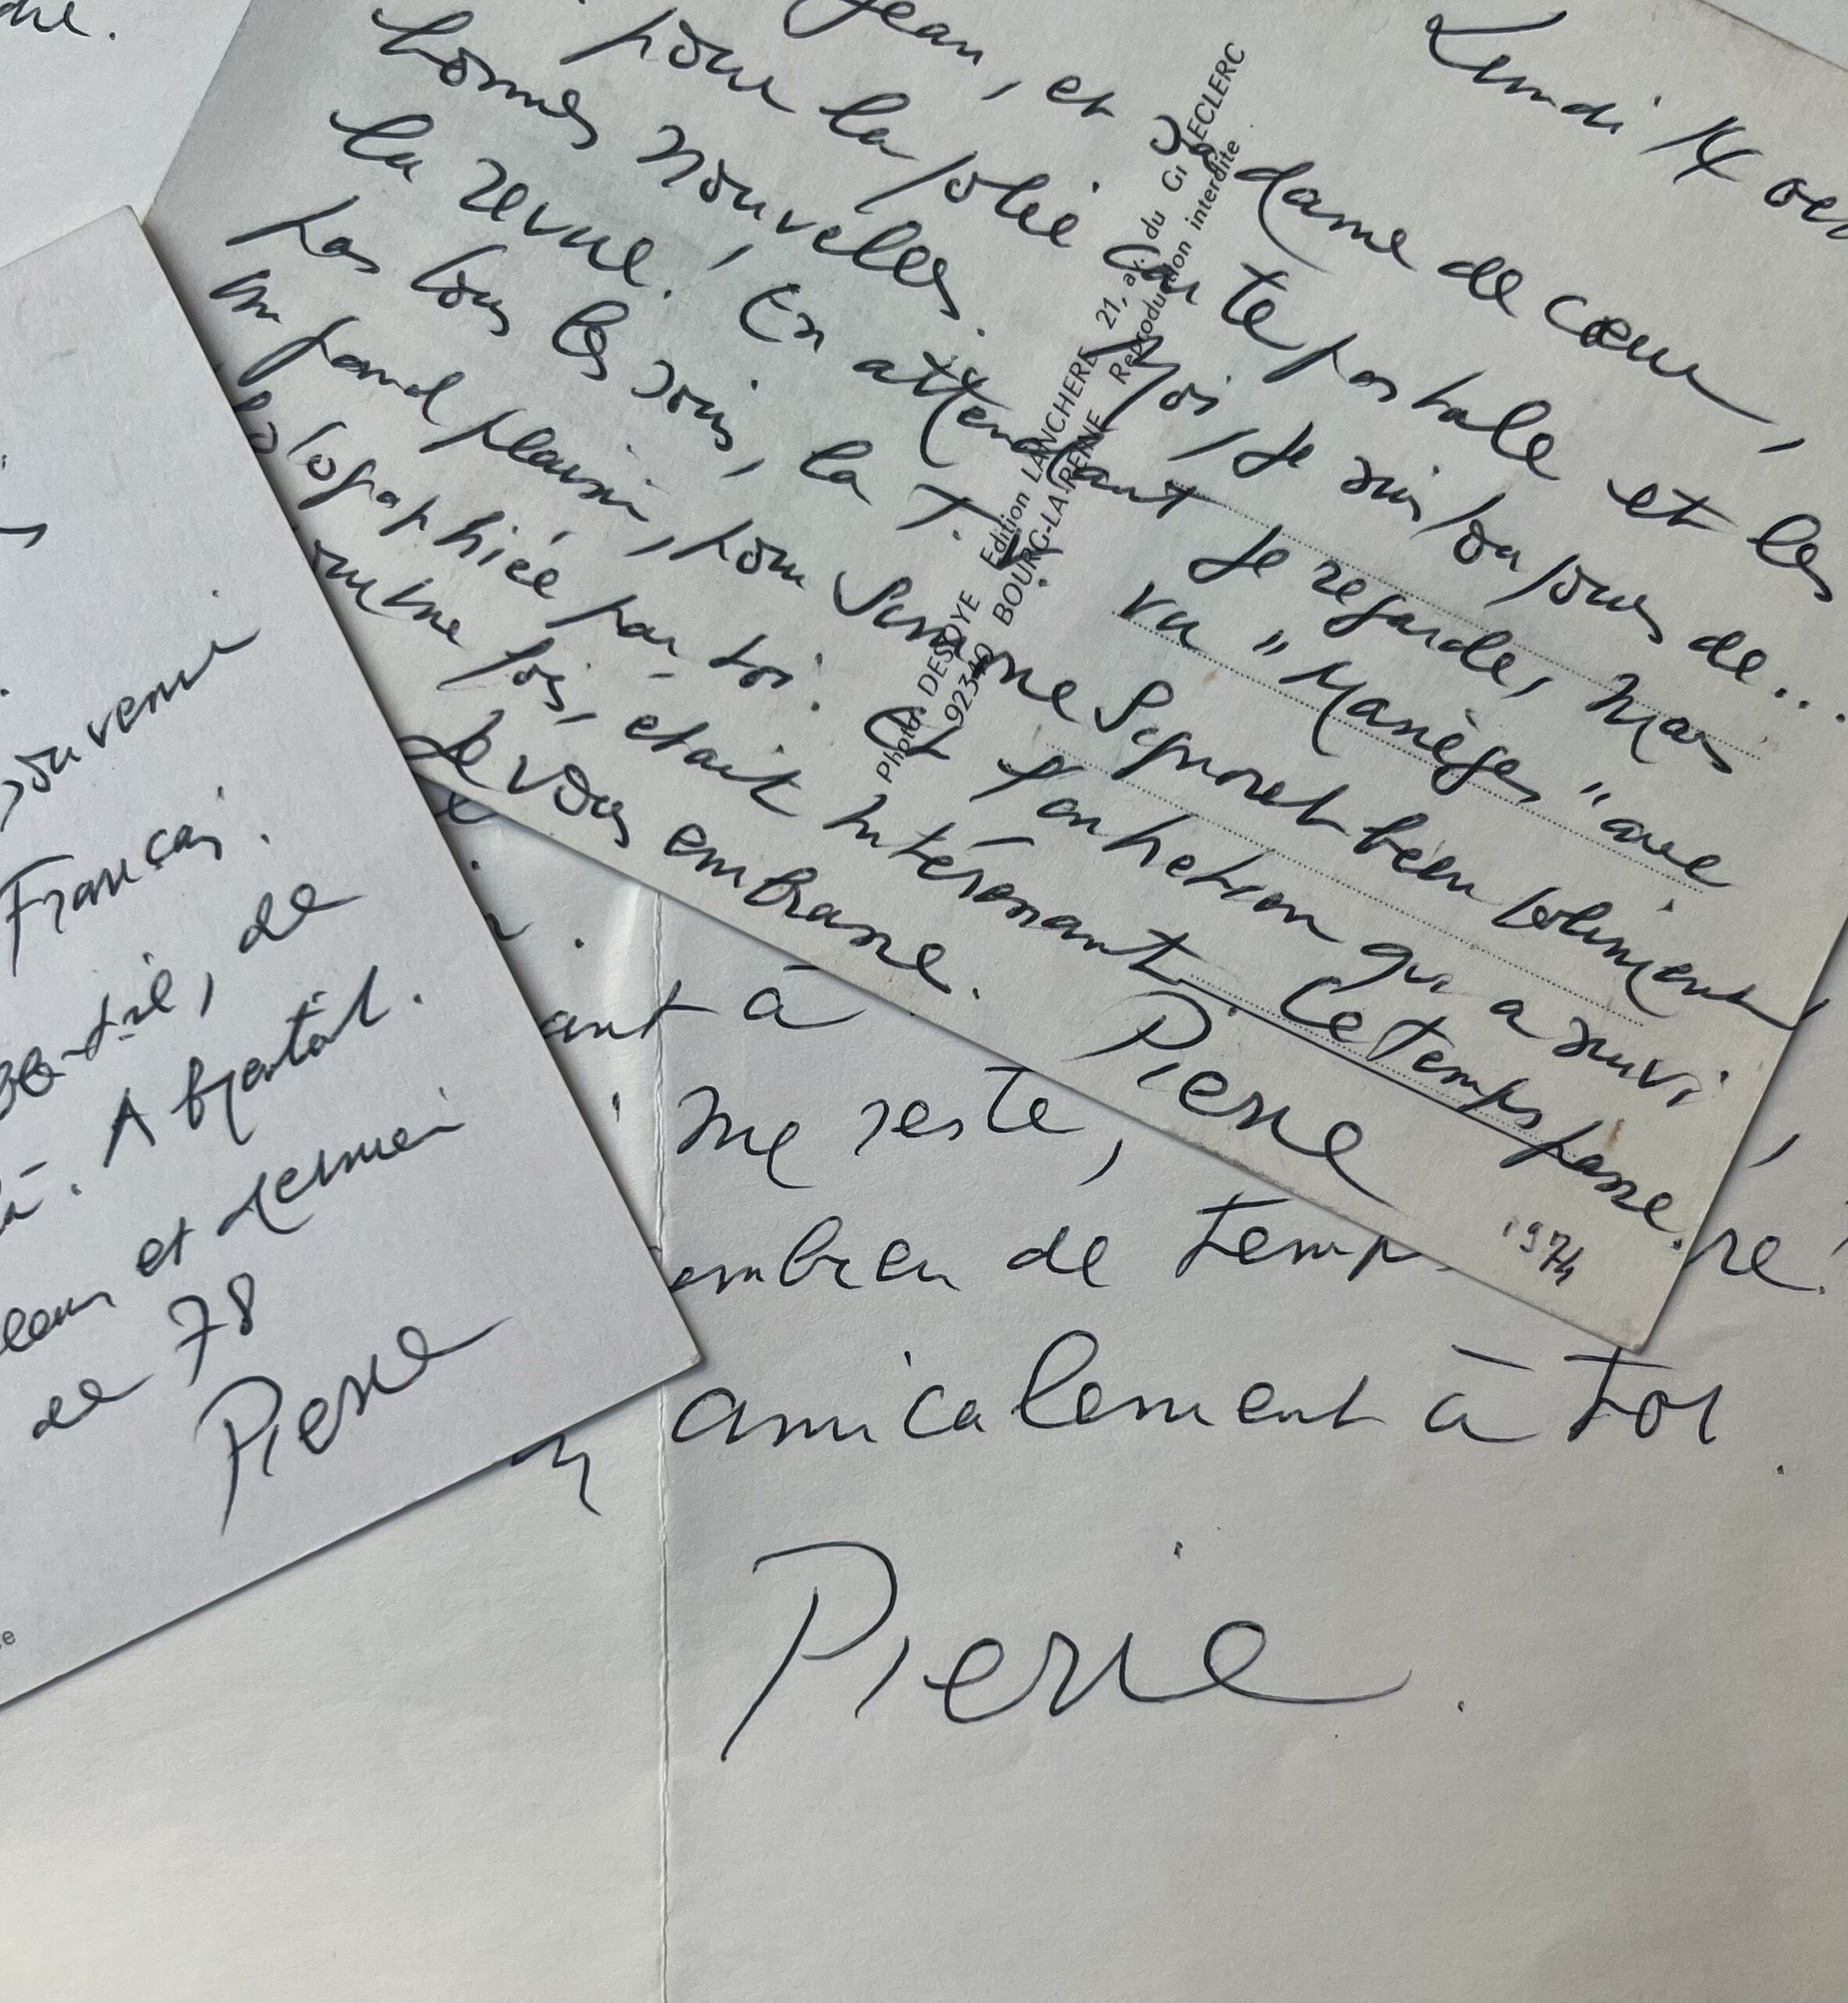 Lundi 14 oct
Jean, et sa dame de cœur,
pour la jolie carte postale et les
bonnes nouvelles. Moi, je suis toujours de...
la revue! En attendant je regarde, mais
pas tous les soirs, la T.V. vu "Manèges" avec
un grand plaisir, pour Simone Signoret bien joliment
photographiée par toi. Et l'entretien qui a suivi,
était intéressant. Le temps passe.
Je vous embrasse.
Pierre
1974
Photo DESOYE Edition LANCHERE 21, av. du Gl LECLERC
92340 BOURG-LA-REINE Reproduction interdite
souvenir
Français.
de
là. A bientôt.
et dernier
de 78
Pierre
ant à
me reste,
de temps
amicalement à toi.
Pierre.